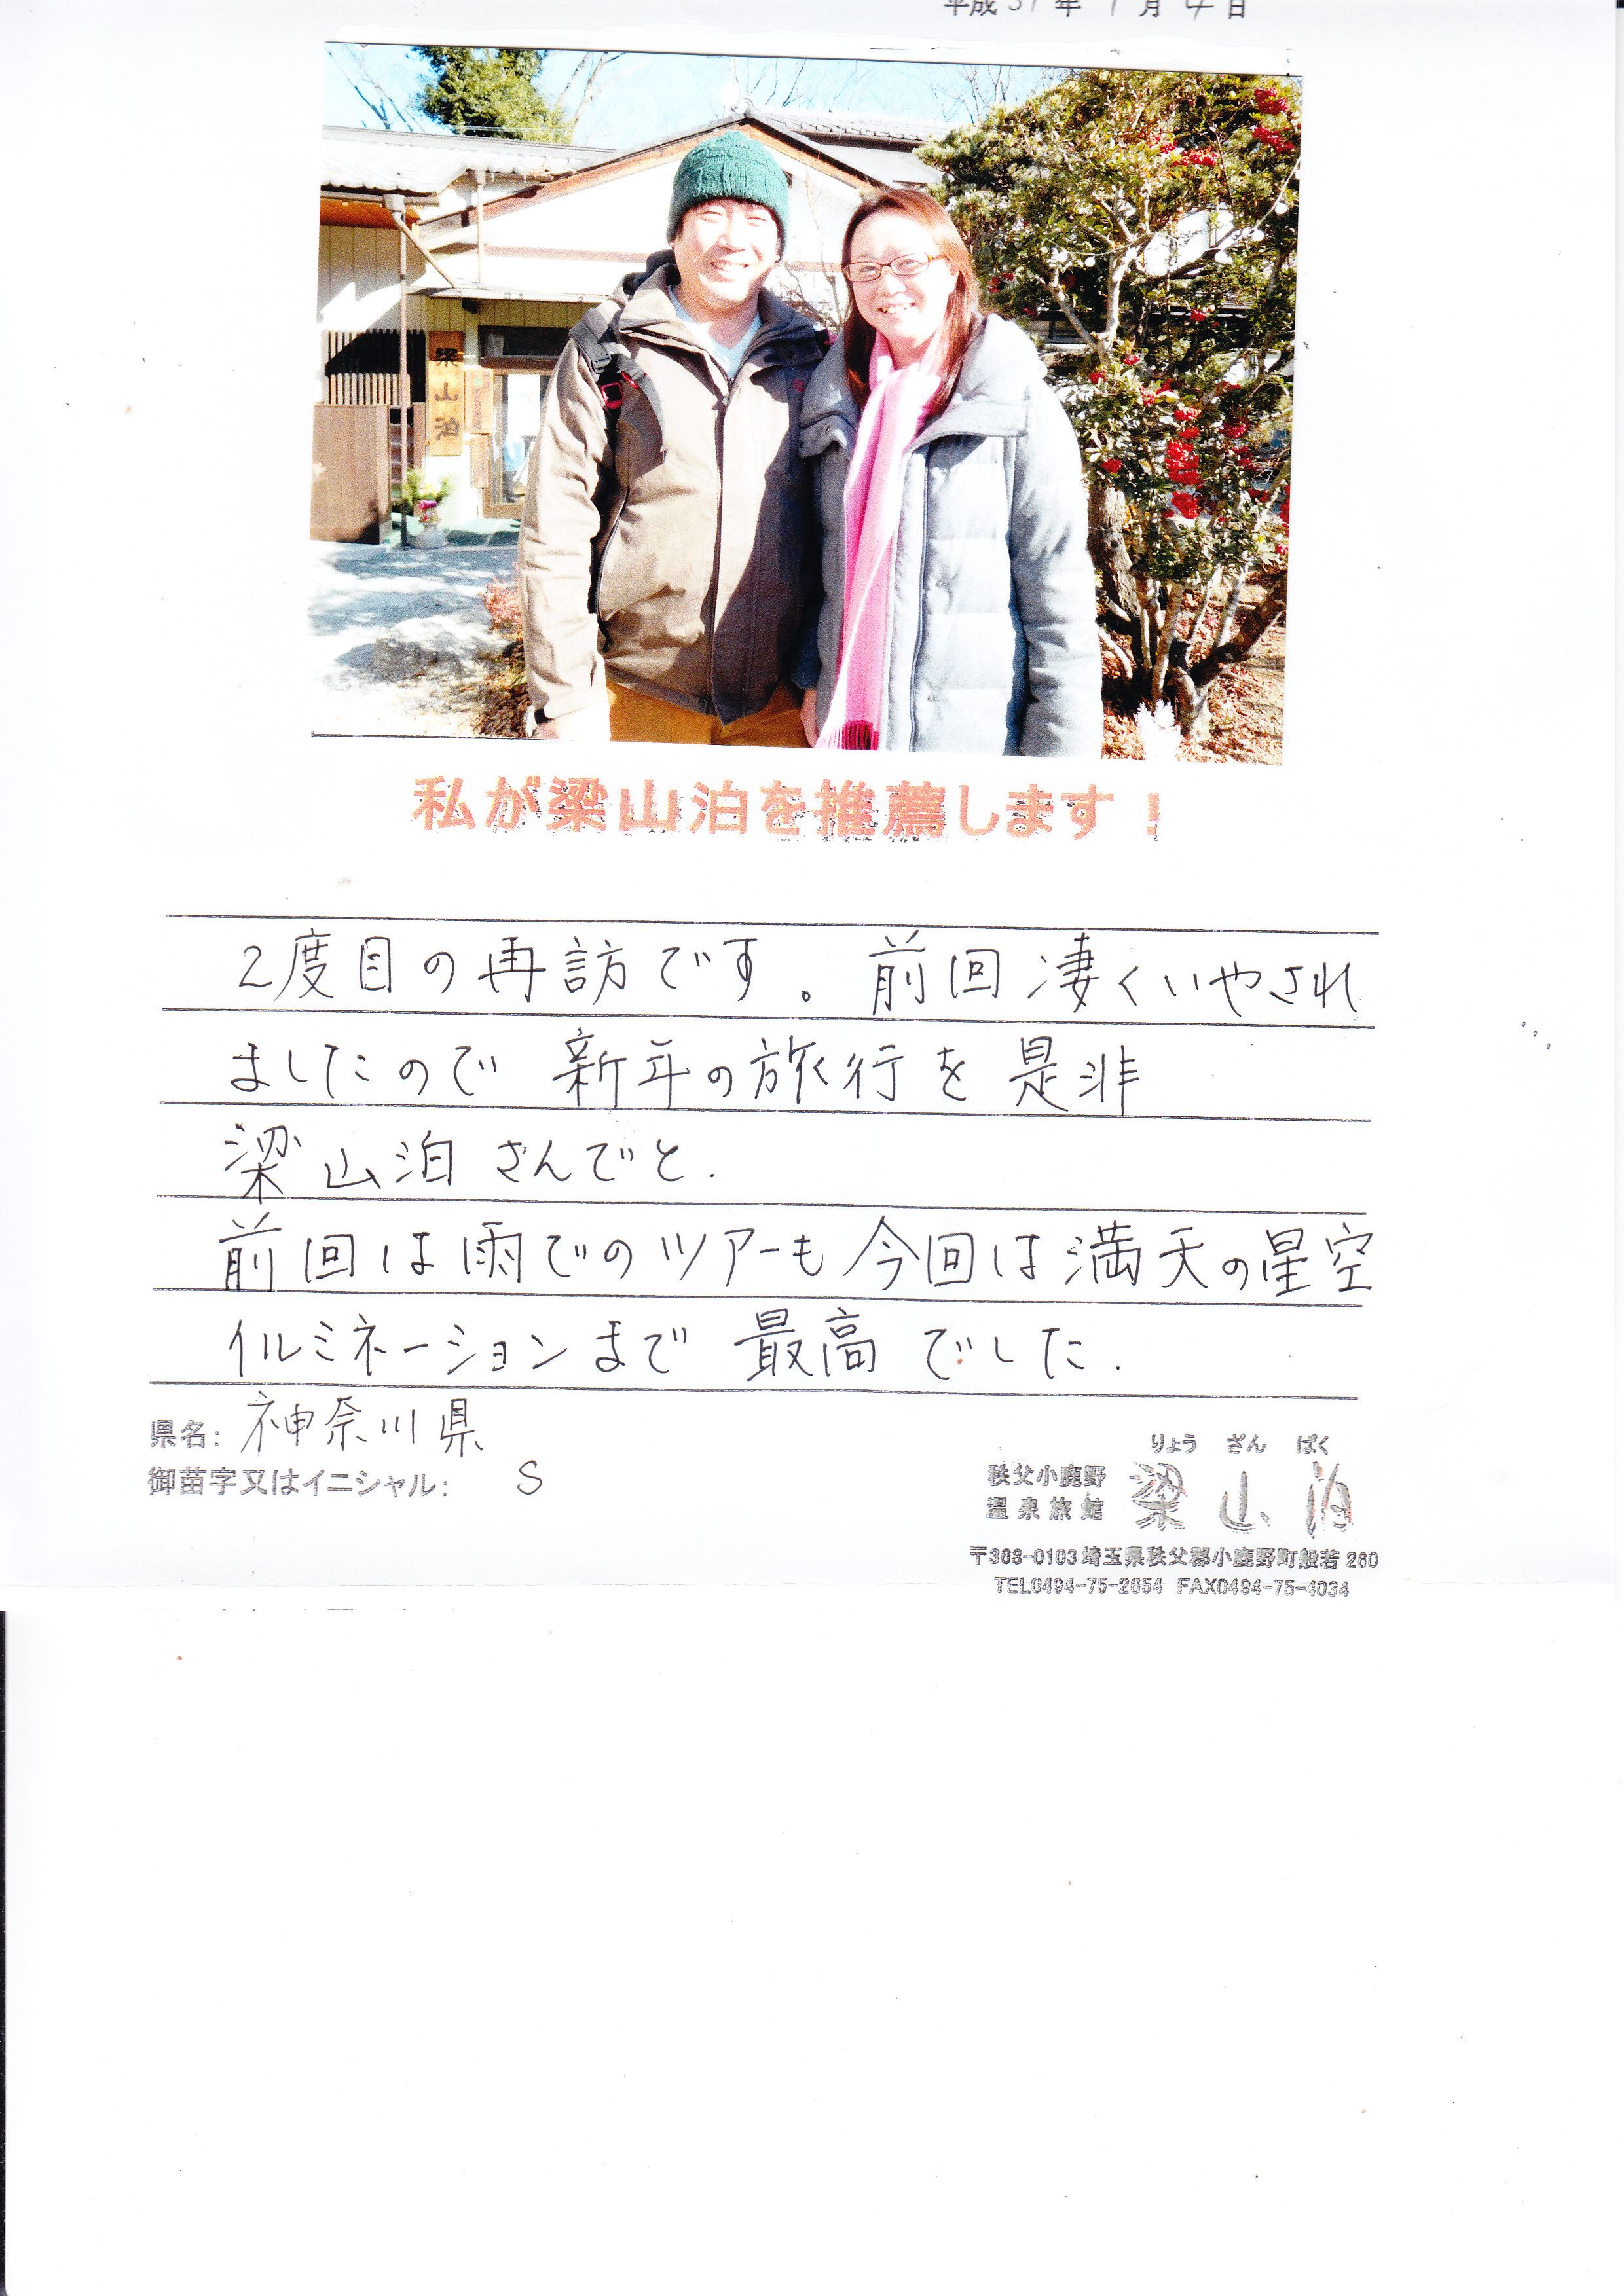 平成31年1月4日
梁山泊
私が梁山泊を推薦します！
2度目の再訪です。前回凄くいやされ
ましたので 新年の旅行を是非
梁山泊さんでと.
前回は雨でのツアーも今回は満天の星空
イルミネーションまで 最高でした.
県名: 神奈川県
御苗字又はイニシャル: S
りょう ざん ぱく
秩父小鹿野
温泉旅館 梁山泊
〒368-0103 埼玉県秩父郡小鹿野町般若260
TEL0494-75-2654 FAX0494-75-4034